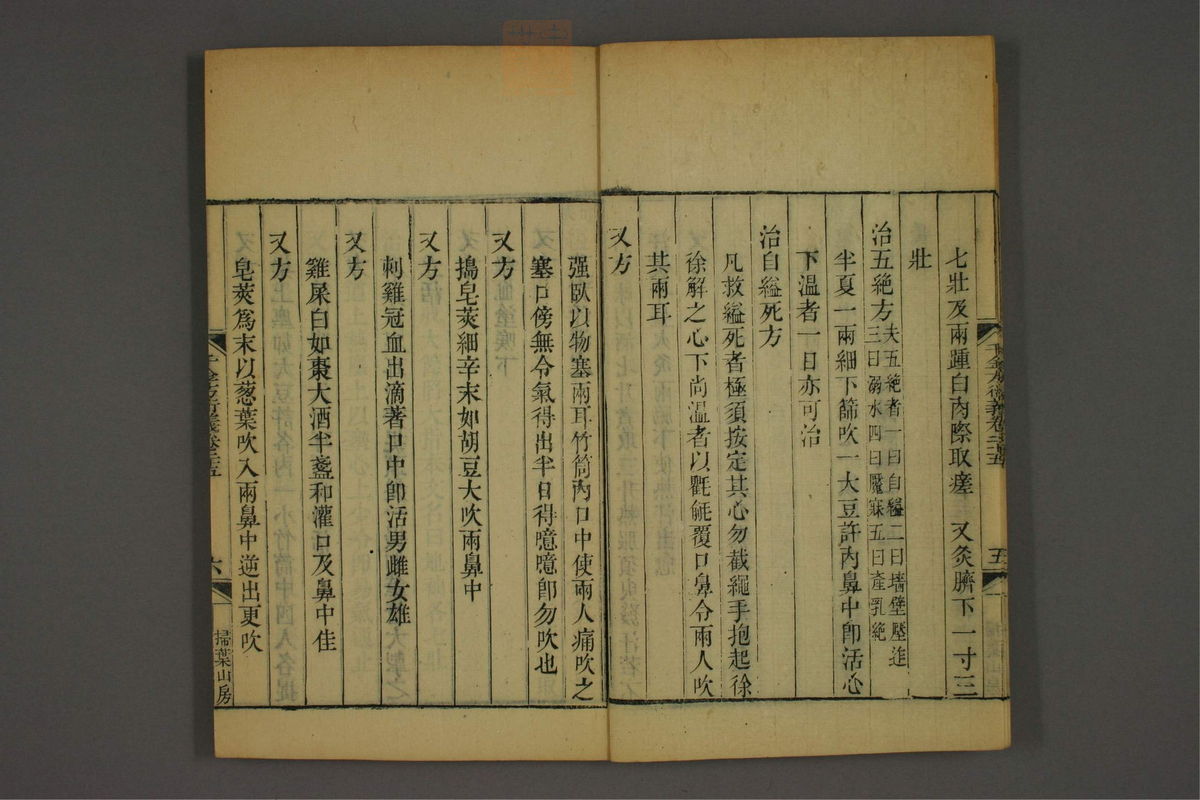 七壯及兩踵白肉際取瘥　又灸臍下一寸三
壯
治五絶方夫五絶者一曰自縊二曰墻壁壓迮
三曰溺水四曰魘寐五曰產乳絶
半夏一兩細下篩吹一大豆許內鼻中卽活心
下温者一日亦可治
治自縊死方
凡救縊死者極須按定其心勿截繩手抱起徐
徐解之心下尚温者以氍毹覆口鼻令兩人吹
其兩耳
又方
强臥以物塞兩耳竹筒內口中使兩人痛吹之
塞口傍無令氣得出半日得噫噫卽勿吹也
又方
搗皂莢細辛末如胡豆大吹兩鼻中
又方
刺雞冠血出滴著口中卽活男雌女雄
又方
雞屎白如棗大酒半盞和灌口及鼻中佳
又方
皂莢爲末以葱葉吹入兩鼻中逆出更吹
五
六
掃葉山房